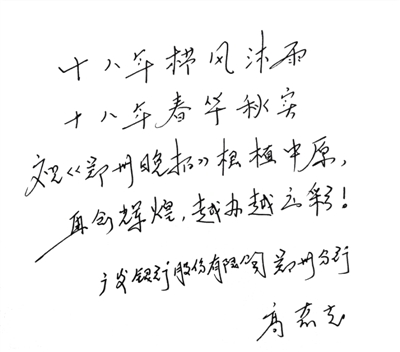 十八年栉风沐雨
十八年春华秋实
祝《郑州晚报》根植中原,
再创辉煌,越办越出彩!
广发银行股份有限公司郑州分行
高